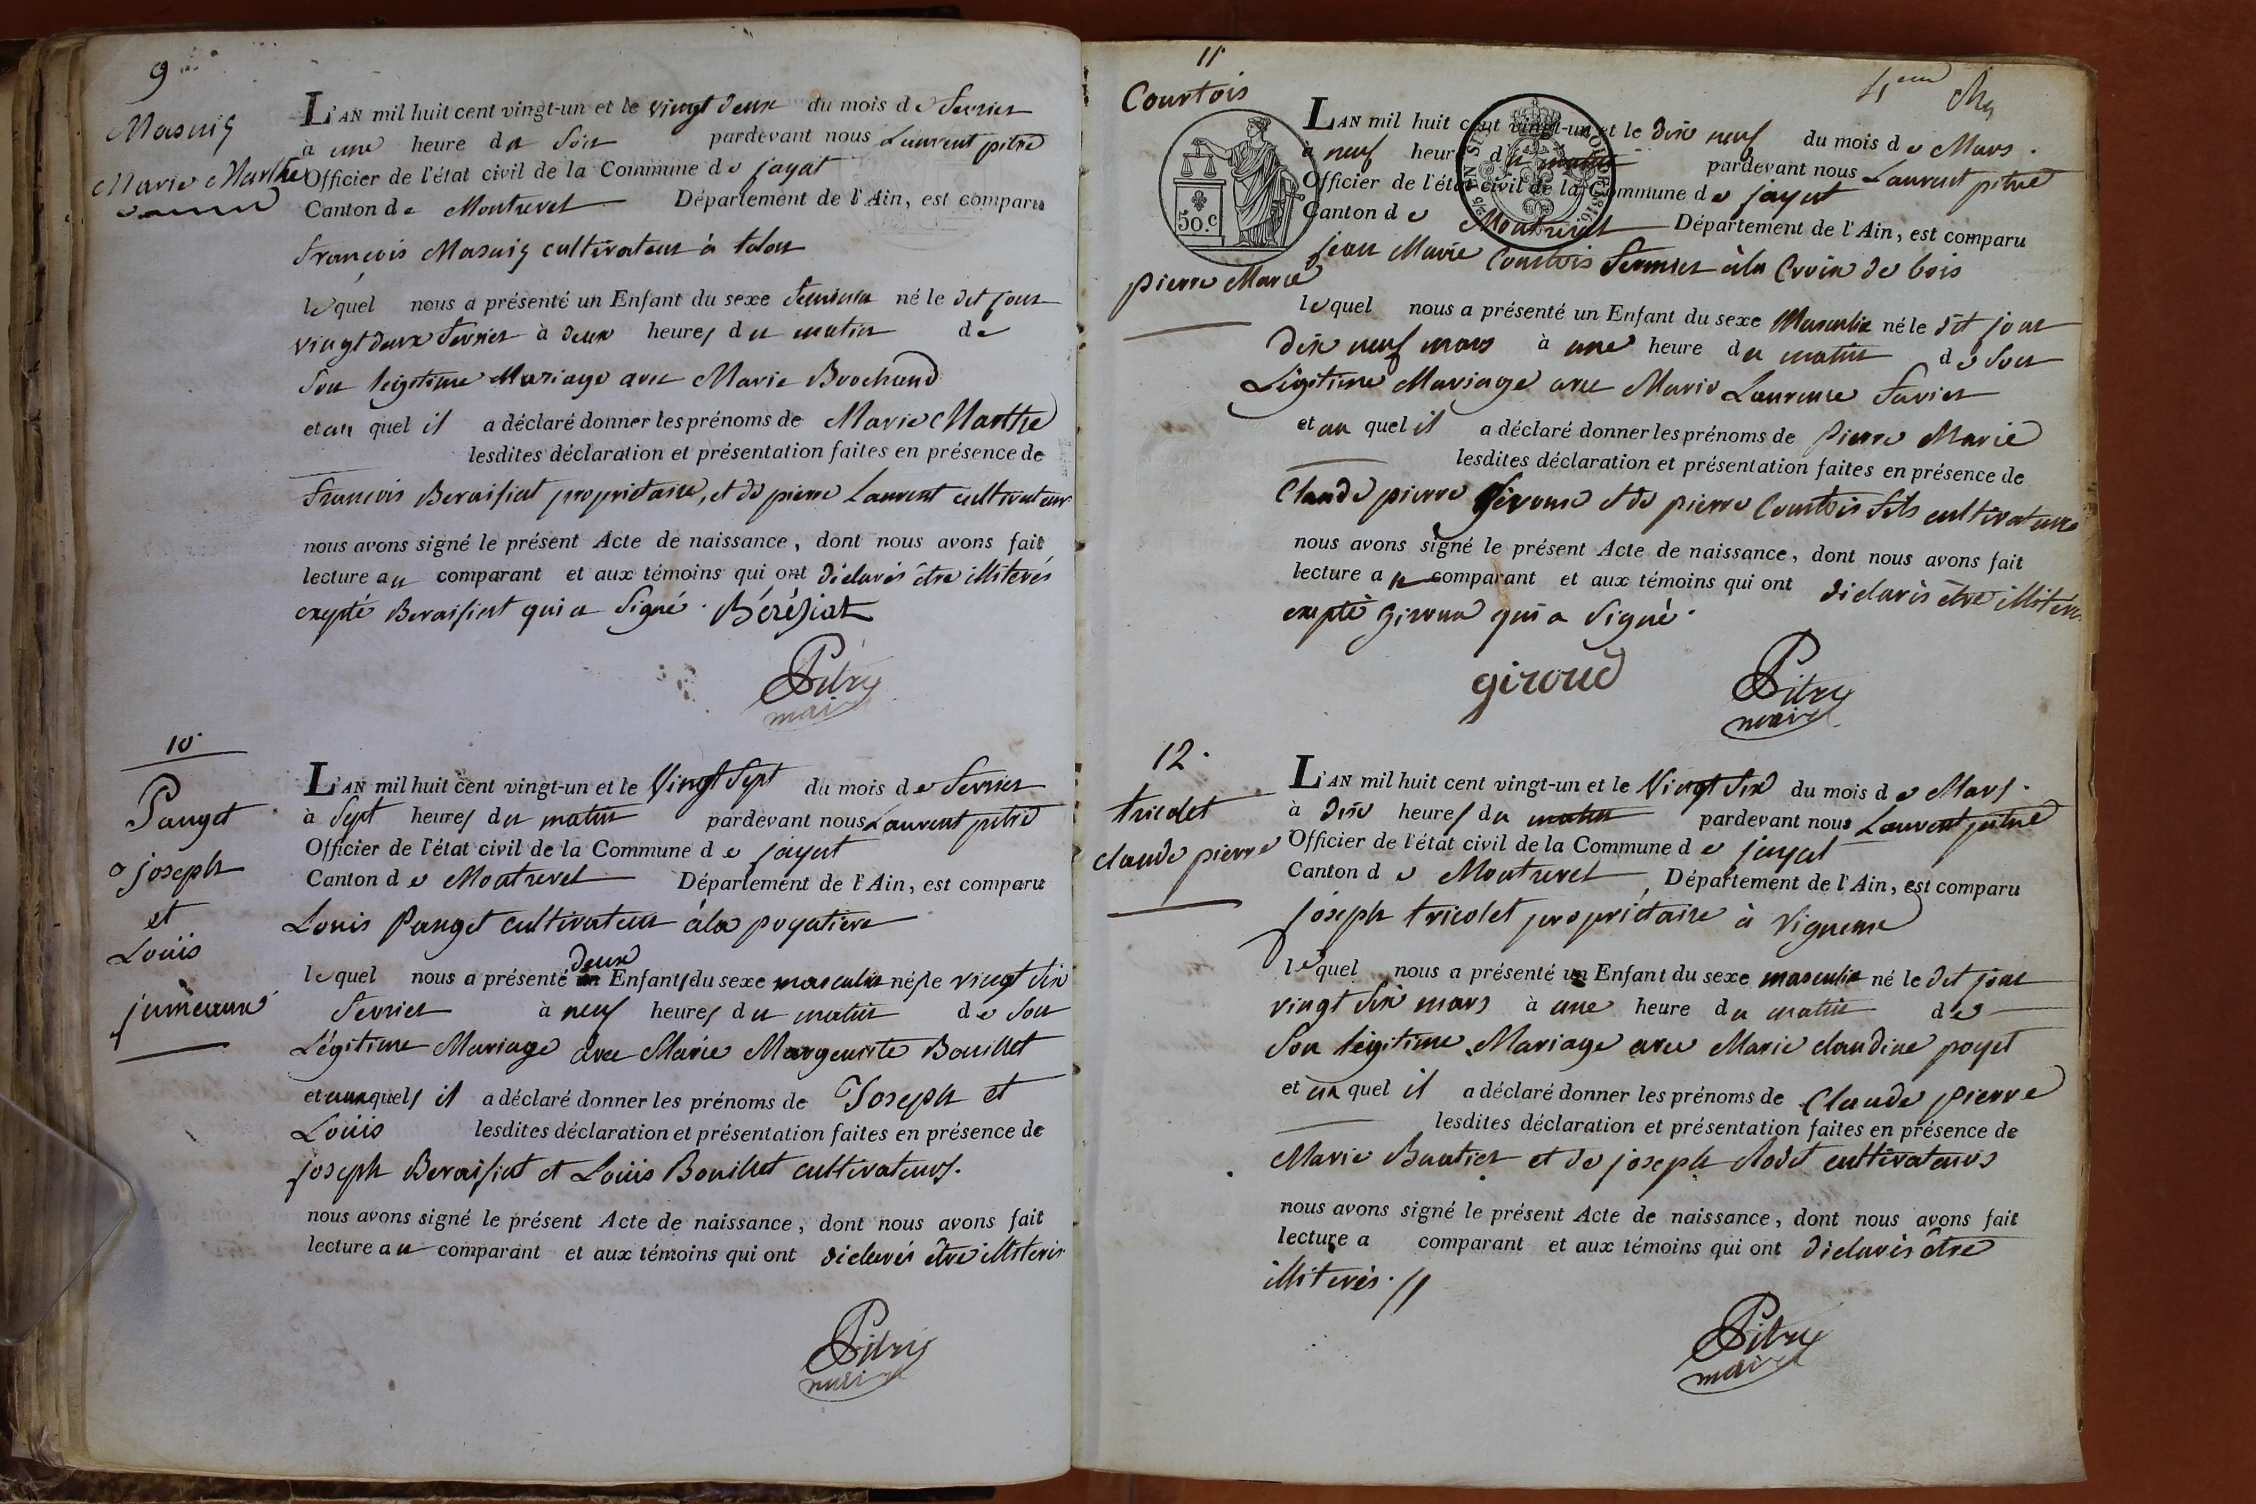 9
Masuiy
Marie Marthe
L'AN mil huit cent vingt-un et le vingt deux du mois de fevrier
à une heure du soir pardevant nous Laurent pitre
Officier de l'état civil de la Commune de jayat
Canton de Montrevel Département de l'Ain, est comparu
françois Masuiy cultivateur à talon
lequel nous a présenté un Enfant du sexe feminin né le dit jour
vingt deux fevrier à deux heures du matin de
son legitime Mariage avec Marie Brochand
et au quel il a déclaré donner les prénoms de Marie Marthe
lesdites déclaration et présentation faites en présence de
françois Beraisiat propriétaire, et de pierre Laurent cultivateur
nous avons signé le présent Acte de naissance, dont nous avons fait
lecture au comparant et aux témoins qui ont déclarés être illiterés
exepté Beraisiat qui a signé. Béréziat
Pitre
maire
10.
Panget
joseph
et
Louis
jumeaux
L'AN mil huit cent vingt-un et le vingt sept du mois de fevrier
à sept heures du matin pardevant nous Laurent pitre
Officier de l'état civil de la Commune de jayat
Canton de Montrevel Département de l'Ain, est comparu
Louis Panget cultivateur à la poyatiere
lequel nous a présenté deux Enfants du sexe masculin nés le vingt six
fevrier à neuf heures du matin de son
Légitime Mariage avec Marie Marguerite Bouillet
et auxquels il a déclaré donner les prénoms de Joseph et
Louis lesdites déclaration et présentation faites en présence de
joseph Beraisiat et Louis Bouillet cultivateurs.
nous avons signé le présent Acte de naissance, dont nous avons fait
lecture au comparant et aux témoins qui ont déclarés être illiterés
Pitre
maire
11
4eme
Courtois
pierre Marie
50.C
L'AN mil huit cent vingt-un et le dix neuf du mois de Mars.
à neuf heures du matin pardevant nous Laurent pitre
Officier de l'état civil de la Commune de jayat
Canton de Montrevel Département de l'Ain, est comparu
jean Marie Courtois fermier à la Croix de bois
lequel nous a présenté un Enfant du sexe Masculin né le dit jour
dix neuf mars à une heure du matin de son
Légitime Mariage avec Marie Laurence favier
et au quel il a déclaré donner les prénoms de Pierre Marie
lesdites déclaration et présentation faites en présence de
Claude pierre Giroux et de pierre Courtois fils cultivateurs
nous avons signé le présent Acte de naissance, dont nous avons fait
lecture au comparant et aux témoins qui ont déclarés être illiterés
exepté Giroux qui a signé.
giroud
Pitre
maire
12.
tricolet
claude pierre
L'AN mil huit cent vingt-un et le vingt six du mois de Mars.
à dix heures du matin pardevant nous Laurent pitre
Officier de l'état civil de la Commune de jayat
Canton de Montrevel Département de l'Ain, est comparu
joseph tricolet propriétaire à Vigneux
lequel nous a présenté un Enfant du sexe masculin né le dit jour
vingt six mars à une heure du matin de
son légitime Mariage avec Marie claudine poyet
et au quel il a déclaré donner les prénoms de Claude pierre
lesdites déclaration et présentation faites en présence de
Marie Bautier et de joseph clodet cultivateurs
nous avons signé le présent Acte de naissance, dont nous avons fait
lecture a comparant et aux témoins qui ont déclarés être
illiterés.
Pitre
maire